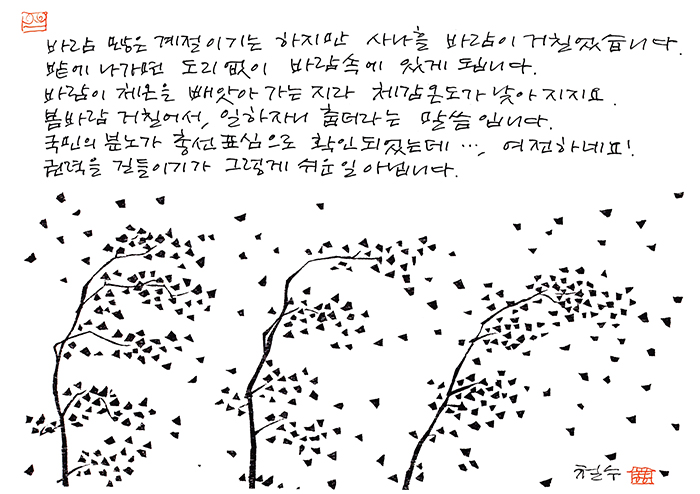 바람 많은 계절이기는 하지만 사나흘 바람이 거칠었습니다.
밭에 나가면 도리없이 바람속에 있게 됩니다.
바람이 체온을 빼앗아 가는지라 체감온도가 낮아지지요.
봄바람 거칠어서, 일하자니 춥더라는 말씀입니다.
국민의 분노가 총선 표심으로 확인되었는데 …, 여전하네요!
권력을 길들이기가 그렇게 쉬운 일 아닙니다.
철수